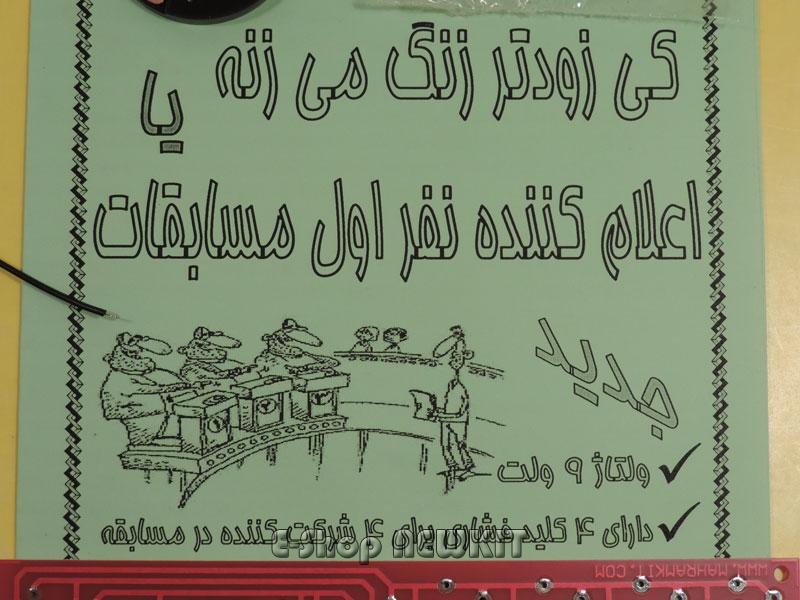 کی زودتر زنگ می زنه
یا
اعلام کننده نفر اول مسابقات
جدید
✓ ولتاژ ۹ ولت
✓ دارای ۴ کلید فشاری برای ۴ شرکت کننده در مسابقه
E-Shop NEWKIT
WWW.MAHRAMKIT.COM